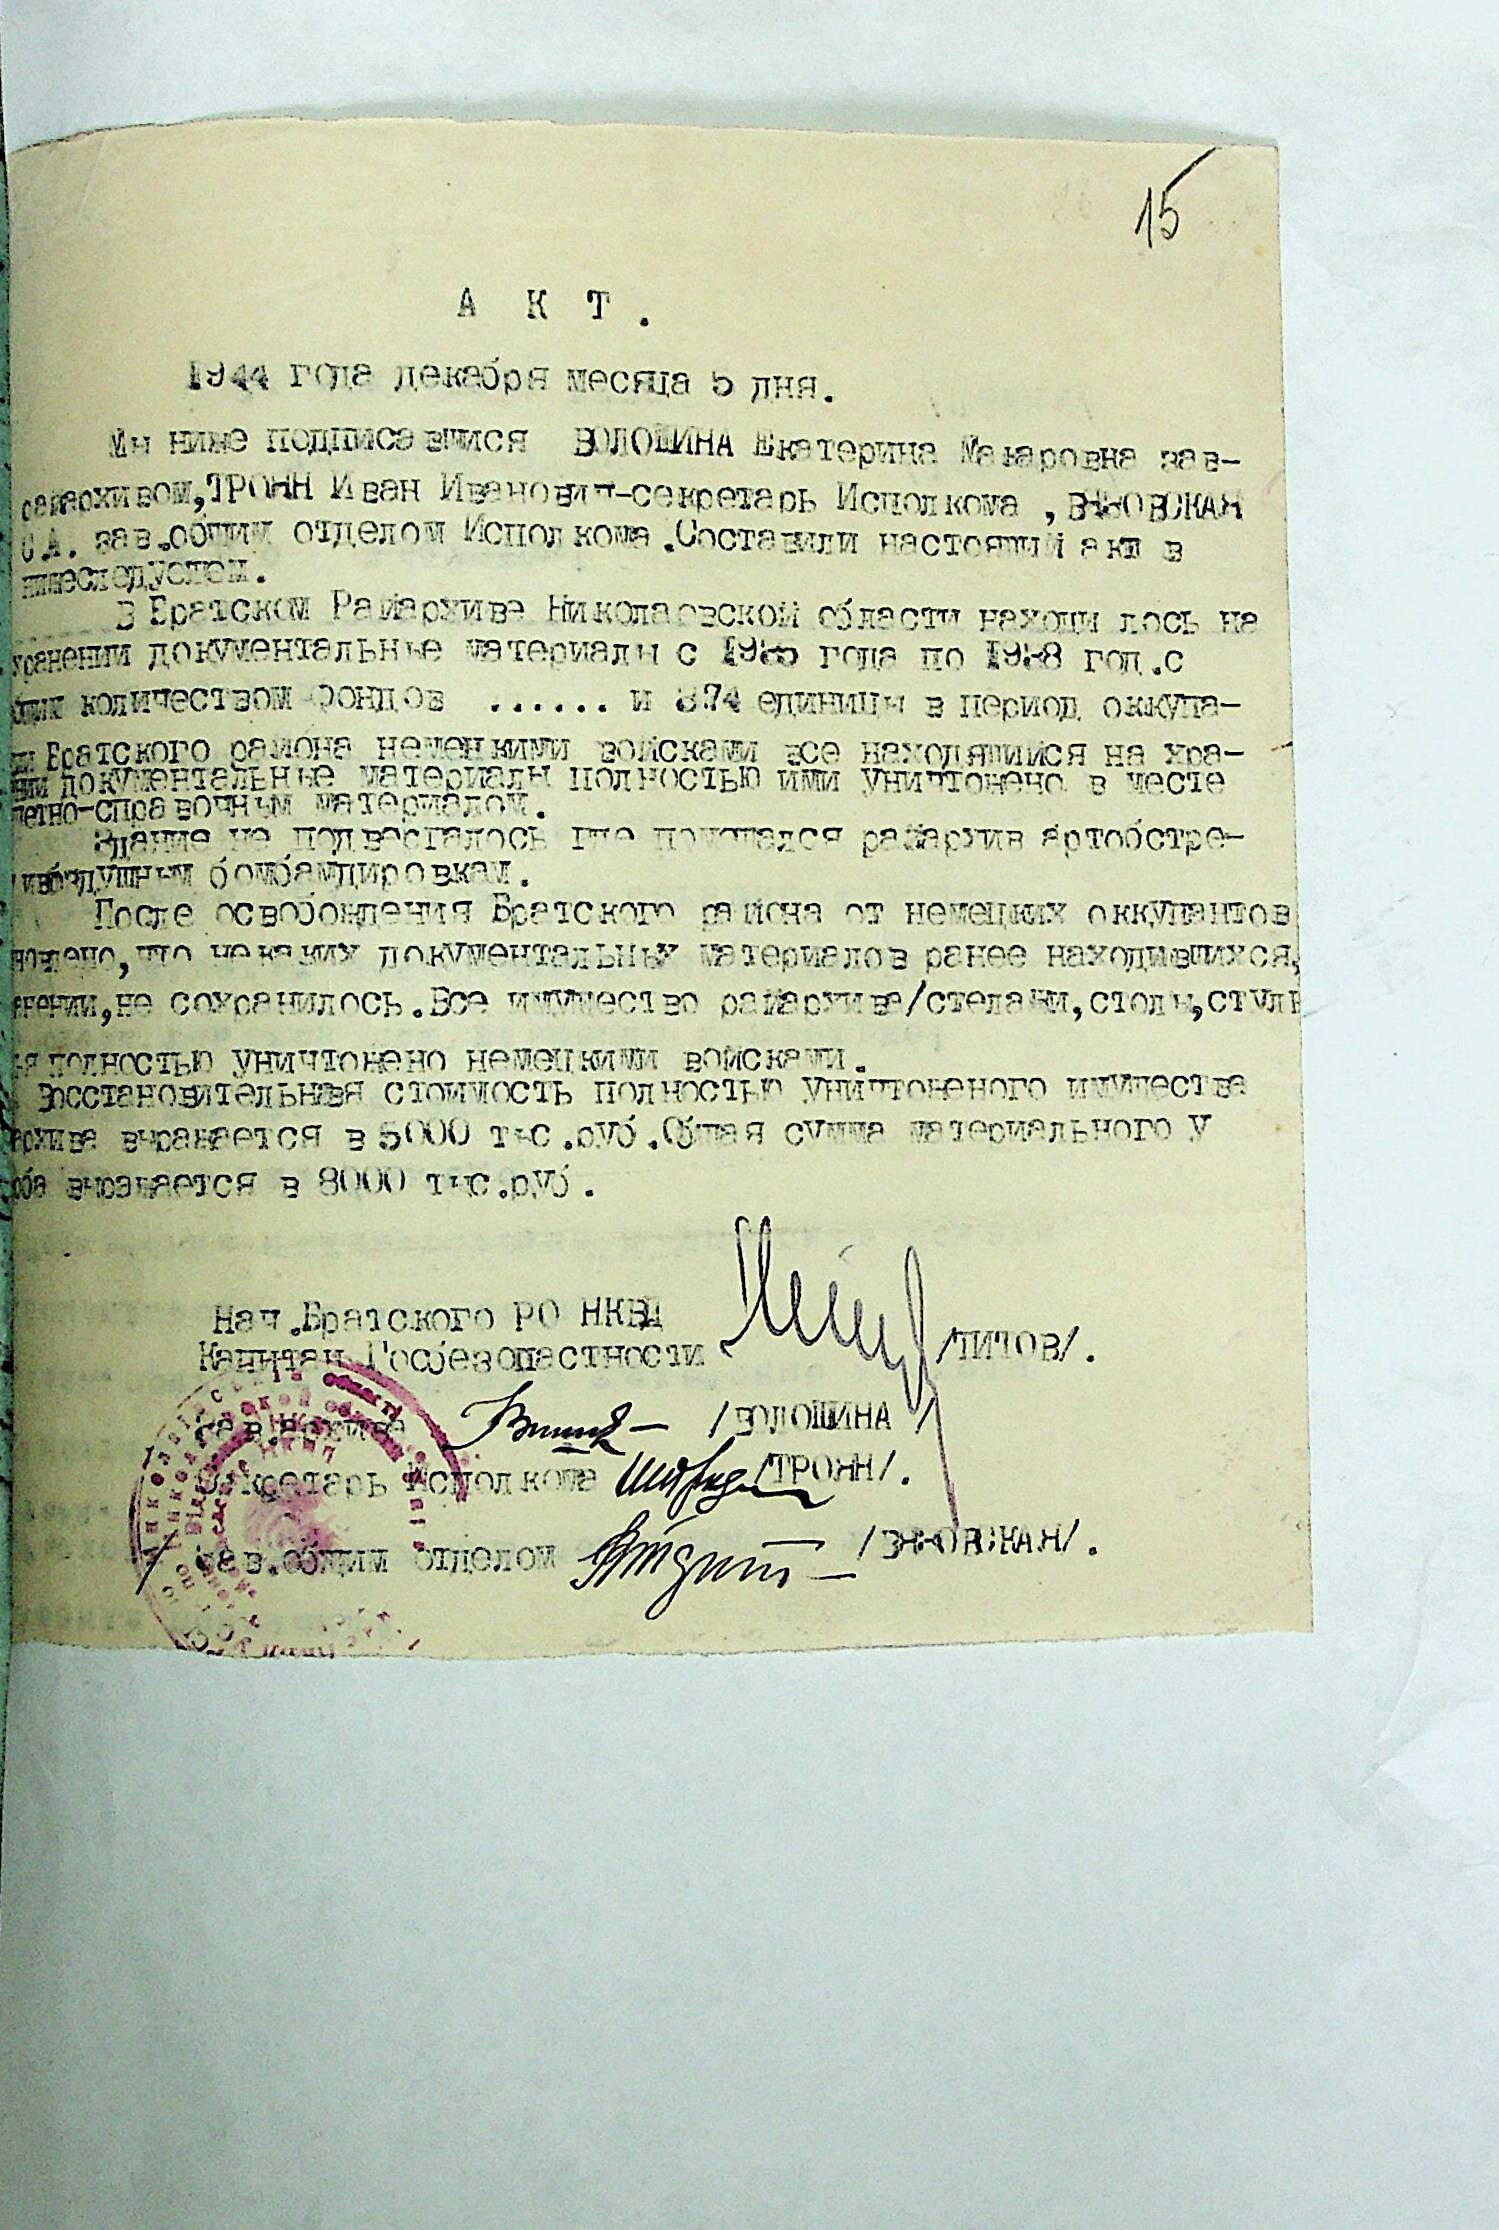 15
А К Т .
1944 года декабря месяца 5 дня.
Мы ниже подписавшися ВОЛОШИНА Екатерина Макаровна зав-
райархивом, ТРОЯН Иван Иванович-секретарь Исполкома ,
С.А. зав.общим отделом Исполкома .Составили настоящий акт в
нижеследуедем.
В Братском Райархиве Николаевской области находилось на
хранении документальные материалы с года по 1938 год .с
общим количеством фондов ...... и 874 единицы в период оккупа-
ии Братского района немецкими войсками все находящийся на хра-
нии документальные материалы полностью ими уничтожено в месте
четно-справочным материалом.
Здание не подвергалось где помещался райархив артобстре-
и воздушным бомбамдировкам.
После освобождения Братского района от немецких оккупантов
новлено, что не каких документальных материалов ранее находившихся,
анении, не сохранилось. Все имущество райархива/стелажи, столы, стуль
ья полностью уничтожено немецкими войсками.
Восстановительная стоимость полностью уничтоженого имущества
архива выражается в 5000 тыс.руб.Общая сумма материального у
рба выражается в 8000 тыс.руб.
Нач.Братского РО НКВД
Капитан Госбезопастности /ТИТОВ/.
Зав.архива /ВОЛОШИНА/
Секретарь Исполкома /ТРОЯН/.
Зав.общим отделом